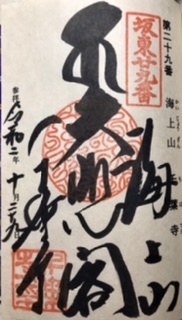 第二十九番 海上山 千葉寺
坂東廿九番
海上山
大悲閣
千葉寺
奉拝 令和二年十月